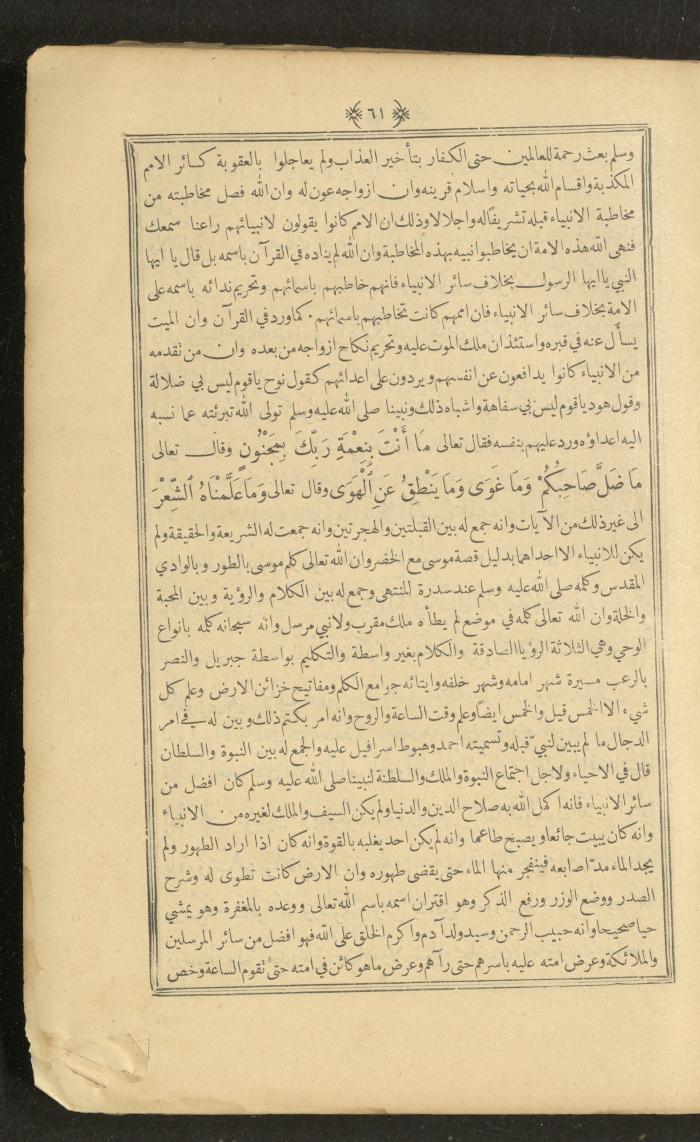 ٦١
وسلم بعث رحمة للعالمين حتى الكفار بتأخير العذاب ولم يعاجلوا بالعقوبة كسائر الامم
المكذبة واقسام الله بحياته واسلام قرينه وان ازواجه عون له وان الله فصل مخاطبته من
مخاطبة الانبياء قبله تشريفًا له واجلالا وذلك ان الامم كانوا يقولون لانبيائهم راعنا سمعك
فنهى الله هذه الامة ان يخاطبوا نبيه بهذه المخاطبة وان الله لم يناده في القرآن باسمه بل قال يا ايها
النبي يا ايها الرسول بخلاف سائر الانبياء فانهم خاطبهم باسمائهم وتحريم ندائه باسمه على
الامة بخلاف سائر الانبياء فان اممهم كانت تخاطبهم باسمائهم · كما ورد في القرآن وان الميت
يسأل عنه في قبره واستئذان ملك الموت عليه وتحريم نكاح ازواجه من بعده وان من نقدمه
من الانبياء كانوا يدافعون عن انفسهم ويردون على اعدائهم كقول نوح ياقوم ليس بي ضلالة
وقول هود ياقوم ليس بي سفاهة واشباه ذلك ونبينا صلى الله عليه وسلم تولى الله تبرئته عما نسبه
اليه اعداؤه ورد عليهم بنفسه فقال تعالى مَا أَنْتَ بِنِعْمَةِ رَبِّكَ بِمَجْنُونٍ وقال تعالى
مَا ضَلَّ صَاحِبُكُمْ وَمَا غَوَى وَمَا يَنْطِقُ عَنِ ٱلْهَوَى وقال تعالى وَمَا عَلَّمْنَاهُ ٱلشِّعْرَ
الى غير ذلك من الآيات وانه جمع له بين القبلتين والهجرتين وانه جمعت له الشريعة والحقيقة ولم
يكن للانبياء الا احداهما بدليل قصة موسى مع الخضر وان الله تعالى كلم موسى بالطور وبالوادي
المقدس وكلمه صلى الله عليه وسلم عند سدرة المنتهى وجمع له بين الكلام والرؤية وبين المحبة
والخلة وان الله تعالى كلمه في موضع لم يطأه ملك مقرب ولا نبي مرسل وانه سبحانه كلمه بانواع
الوحي وهي الثلاثة الرؤيا الصادقة والكلام بغير واسطة والتكليم بواسطة جبريل والنصر
بالرعب مسيرة شهر امامه وشهر خلفه وايتائه جوامع الكلم ومفاتيح خزائن الارض وعلم كل
شيء الا الخمس قيل والخمس ايضًا وعلم وقت الساعة والروح وانه امر بكتم ذلك وبين له في امر
الدجال ما لم يبين لنبيّ قبله وتسميته احمد وهبوط اسرافيل عليه والجمع له بين النبوة والسلطان
قال في الاحياء ولاجل اجتماع النبوة والملك والسلطنة لنبينا صلى الله عليه وسلم كان افضل من
سائر الانبياء فانه اكمل الله به صلاح الدين والدنيا ولم يكن السيف والملك لغيره من الانبياء
وانه كان يبيت جائعا ويصبح طاعما وانه لم يكن احد يغلبه بالقوة وانه كان اذا اراد الطهور ولم
يجد الماء مدّ اصابعه فينفجر منها الماء حتى يقضى طهوره وان الارض كانت تطوى له وشرح
الصدر ووضع الوزر ورفع الذكر وهو اقتران اسمه باسم الله تعالى ووعده بالمغفرة وهو يمشي
حيا صحيحا وانه حبيب الرحمن وسيد ولد آدم واكرم الخلق على الله فهو افضل من سائر المرسلين
والملائكة وعرض امته عليه باسرهم حتى رآهم وعرض ما هو كائن في امته حتى نقوم الساعة وخص